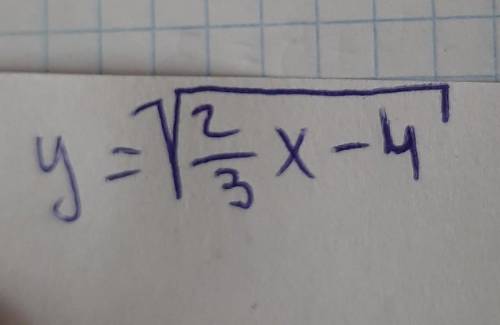 y = √(2/3 x - 4)